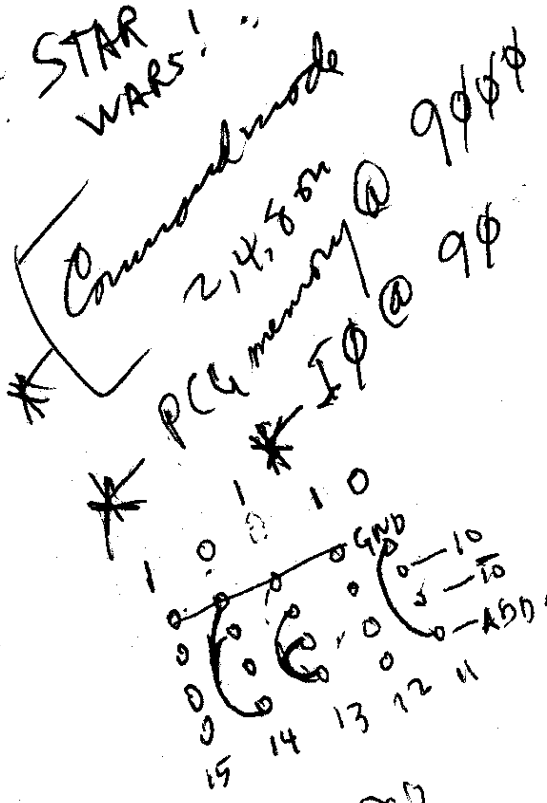 STAR
WARS!
Command mode
2,4,8 on
PCG memory @ 9ØØØ
IØ @ 9Ø
1 0 0 1 1 0
GND
10
1̅0̅
ADD
15 14 13 12 11